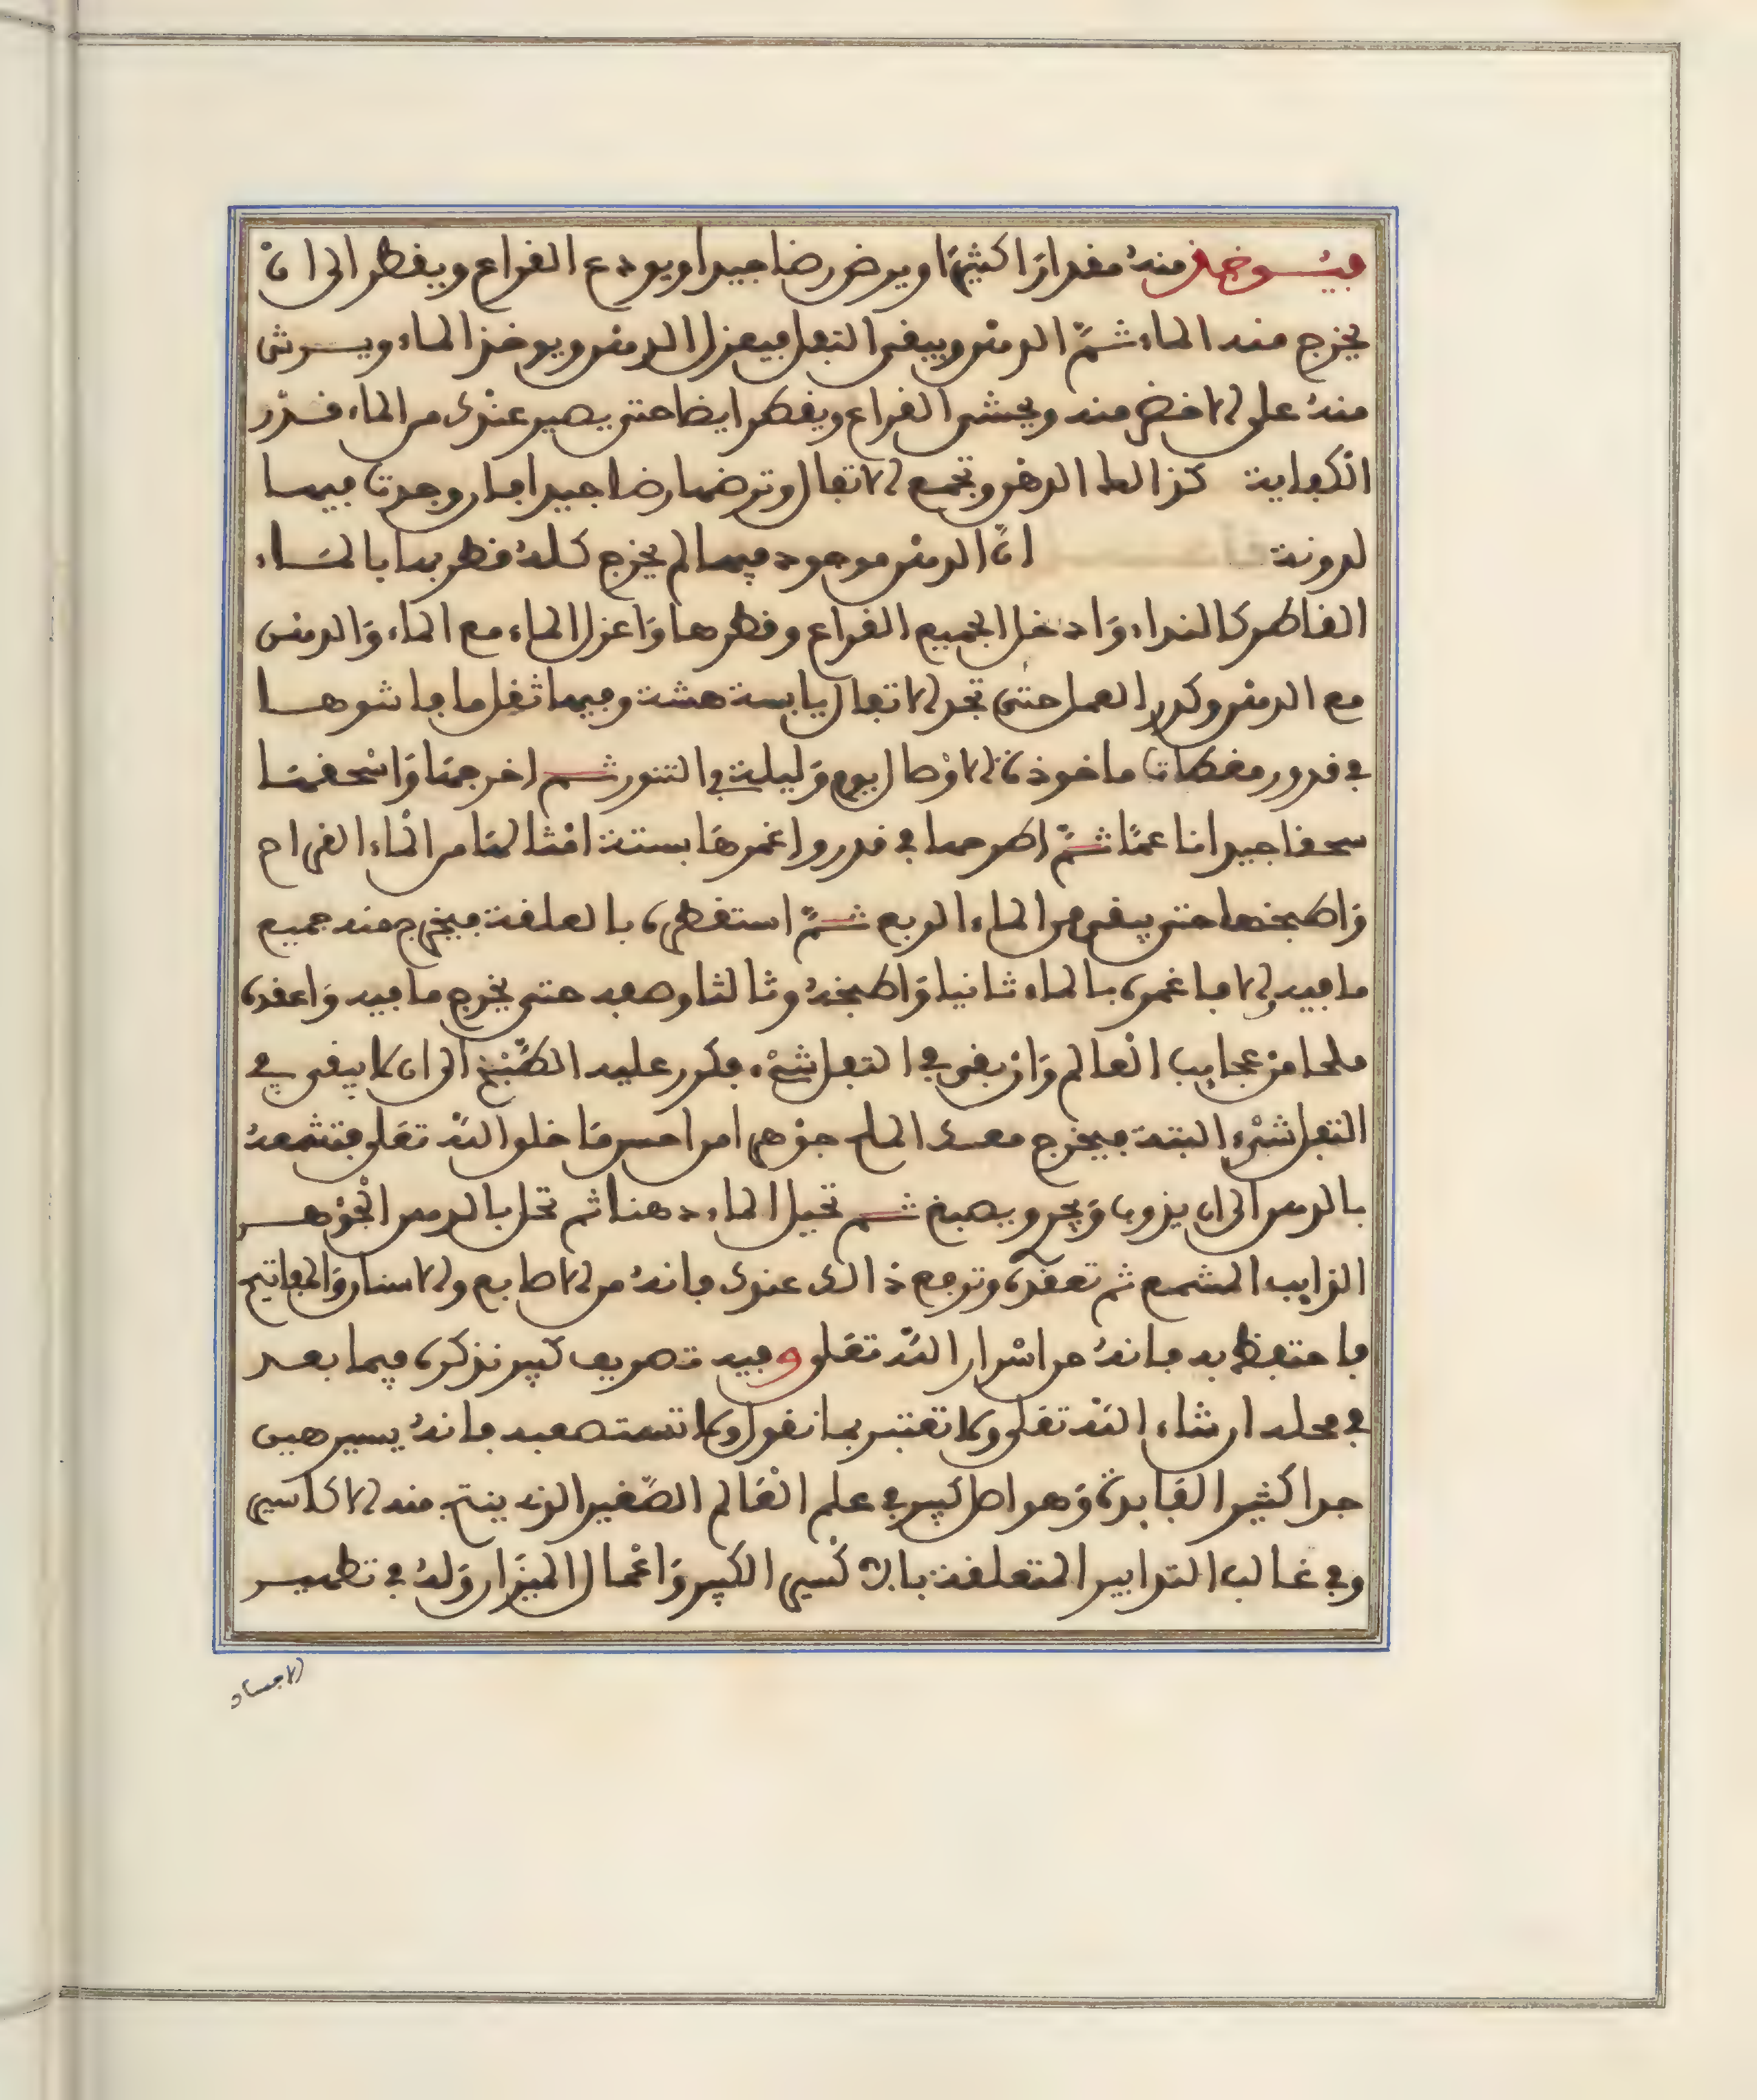 فيوخذ منه مقدارا كثيرا ويرض رضا جيدا ويودع القراع ويقطر الى ان
يخرج منه الماء ثم الدهن ويبقى الثفل فيعزل الدهن ويوخذ الماء ويرش
منه على الاخضر منه ويحشى القراع ويقطر ايضا حتى يصير عندك من الماء قدر
الكفاية كذالك الدهن وتجمع الاثفال وترضها رضا جيدا فان وجدت فيها
لدونة ان الدهن موجود فيها لم يخرج كله فطريها بالماء
القاطر كالنداء وادخل الجميع القراع وقطرها واعزل الماء مع الماء والدهن
مع الدهن وكرر العمل حتى تجد الاثفال يابسة هشة وفيها ثقل ما فاشوها
في قدور مغطات ماخوذة الاوصال يوم وليلة في التنور ثم اخرجها واسحقها
سحقا جيدا ناعما ثم اطرحها في قدر واغمرها بستة امثالها من الماء القراح
واطبخها حتى يبقى من الماء الربع ثم استقطره بالعلقة فيخرج منه جميع
ما فيه والا فاغمره بالماء ثانيا واطبخه وثالثا وصفه حتى يخرج ما فيه واعقده
ملحا من عجايب العالم وان بقي في الثفل شيء فكرر عليه الطبخ الى ان لا يبقى في
الثفل شيء البتة فيخرج معك الملح جوهرا من احسن ما خلق الله تعلى فتشمعه
بالدهن الى ان يذوب ويجر ويصبغ ثم تحيل الماء دهنا ثم تحل بالدهن الجوهر
الذايب المشمع ثم تعقده وترفع ذالك عندك فانه من الاصابع والاسنان والمفاتيح
فاحتفظ به فانه من اسرار الله تعلى وفيه تصريف كبير نذكره فيما بعد
في محله ان شاء الله تعلى ولا تغتر بما نقول ولا تستصعبه فانه يسير هين
جدا كثير الفايدة وهو اصل كبير في علم العالم الصغير الذي ينتج منه الاكاسير
وفي غالب التدابير المتعلقة بالاكسير الكبير واعمال الميزان وله في تطهير
الاجساد